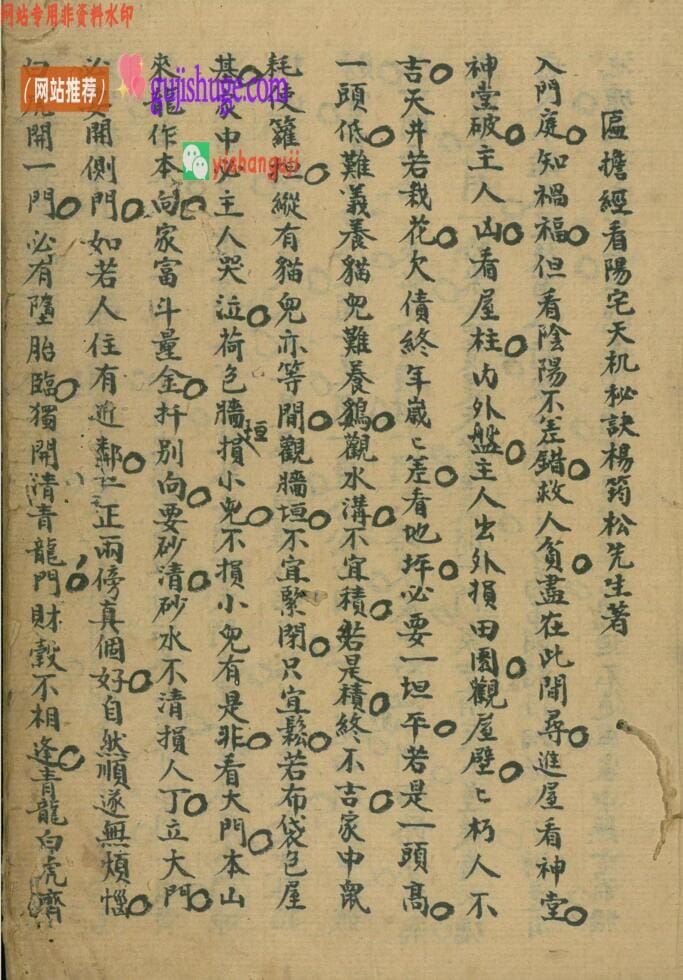 网站专用非资料水印
(网站推荐)
gujishuge.com
yishanguji
區擔經看陽宅天机秘訣楊筠松先生著
入門庭知禍福但看陰陽不差錯救人貧盡在此間尋進屋看神堂
神堂破主人凶看屋柱内外盤主人出外損田園觀屋壁〻朽人不
吉天井若栽花欠債終年嵗〻差看地坪必要一坦平若是一頭高
一頭低難義養貓兒難養鷄觀水溝不宜積若是積終不吉家中鼠
耗籬垣縱有貓兒亦等閒觀牆垣不宜緊閉只宜鬆若布袋包屋
基中必主人哭泣荷包牆垣損小兒不損小兒有是非看大門本山
來龍作本向家富斗量金扦别向要砂清砂水不清損人丁立大門
開側門如若人住有近鄰仁正兩傍真個好自然順遂無煩惱
開一門必有墮胎臨獨開清青龍門財穀不相逢青龍白虎齊